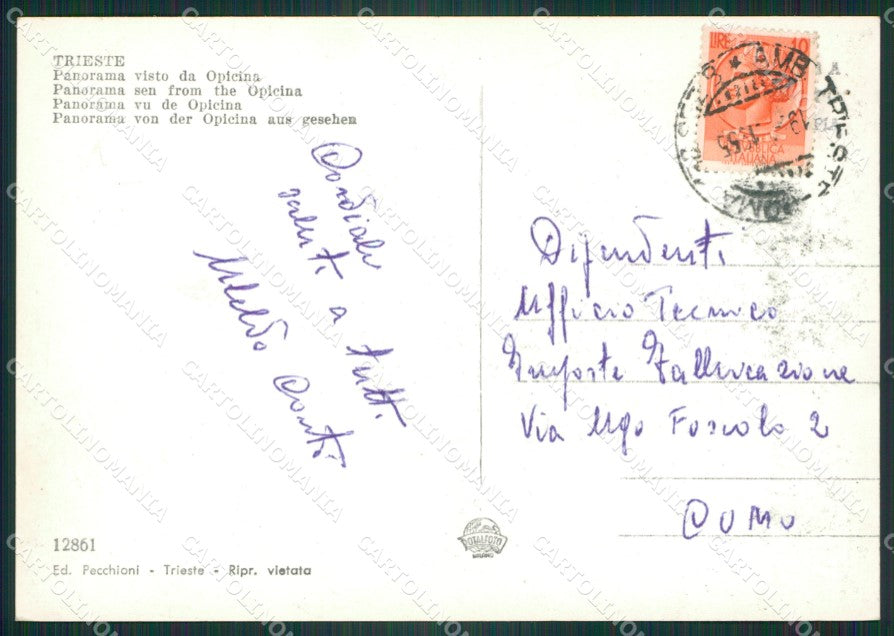 TRIESTE
Panorama visto da Opicina
Panorama sen from the Opicina
Panorama vu de Opicina
Panorama von der Opicina aus gesehen
Cordiali
saluti
a tutti
Conti
LIRE 10
REPUBBLICA
ITALIANA
AMB. TRIESTE
ROMA
Dipendenti
Ufficio Tecnico
Imposte Fabbricazione
Via Ugo Foscolo 2
COMO
12861
Ed. Pecchioni - Trieste - Ripr. vietata
ROTALFOTO
MILANO
CARTOLINOMANIA